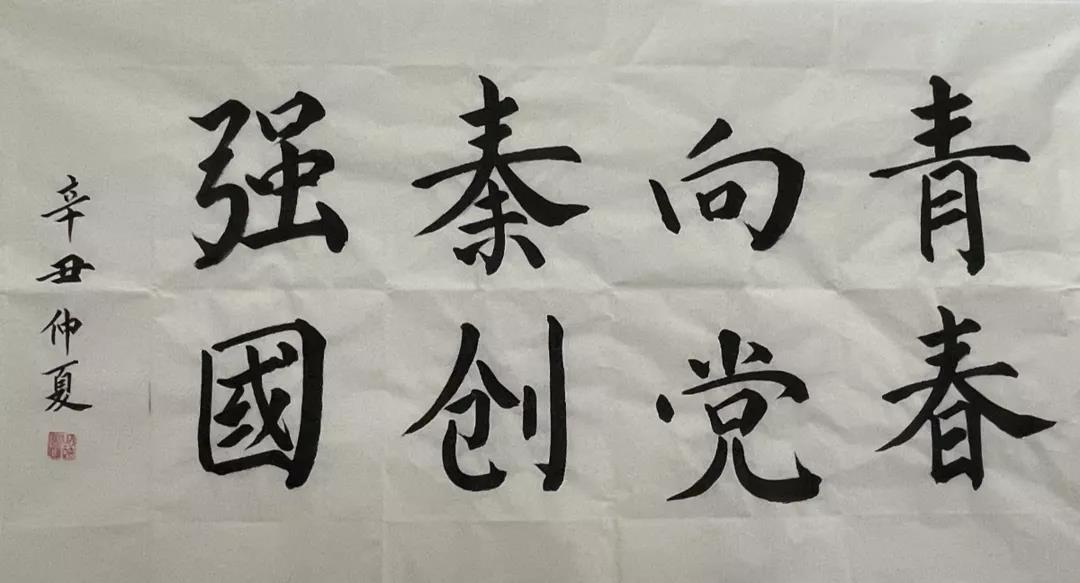 青春
向党
秦创
强國
辛丑仲夏